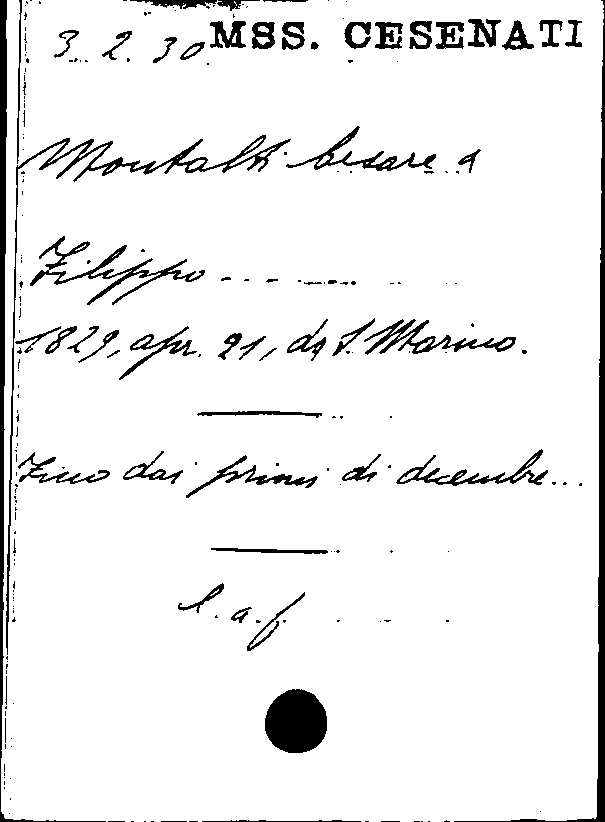 3.2.30 MSS. CESENATI
Montalti Cesare a
Filippo
1829, apr. 21, da S. Marino.
Fino dai primi di decembre...
L. a. f.